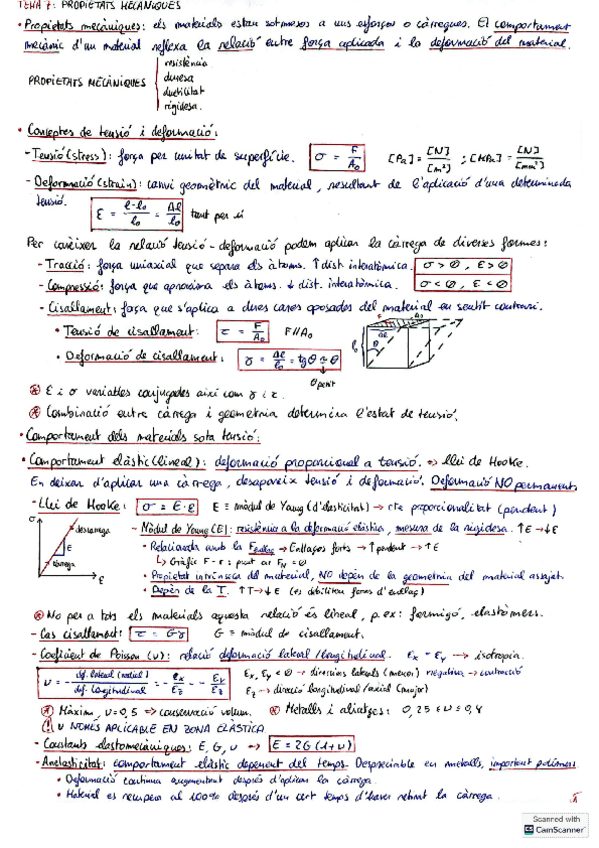 TEMA 7: PROPIETATS MECÀNIQUES
• Propietats mecàniques: els materials estan sotmesos a uns esforços o càrregues. El comportament
mecànic d'un material reflexa la relació entre força aplicada i la deformació del material.
PROPIETATS MECÀNIQUES
resistència.
duresa
ductilitat
rigidesa.
• Conceptes de tensió i deformació:
- Tensió (stress): força per unitat de superfície. σ = F/A₀ [Pa] = [N]/[m²] ; [MPa] = [N]/[mm²]
- Deformació (strain): canvi geomètric del material, resultant de l'aplicació d'una determinada
tensió.
ε = l-l₀/l₀ = Δl/l₀ tant per u
Per conèixer la relació tensió-deformació podem aplicar la càrrega de diverses formes:
- Tracció: força uniaxial que separa els àtoms. ↑ dist. interatòmica. σ > 0, ε > 0
- Compressió: força que aproxima els àtoms. ↓ dist. interatòmica. σ < 0, ε < 0
- Cisallament: força que s'aplica a dures cares oposades del material en sentit contrari.
• Tensió de cisallament: τ = F/A₀ F//A₀
• Deformació de cisallament: γ = Δl/l₀ = tgθ ≈ θ
θ petit
⊛ ε i σ variables conjugades així com γ i τ.
⊛ Combinació entre càrrega i geometria determina l'estat de tensió.
• Comportament dels materials sota tensió:
• Comportament elàstic (lineal): deformació proporcional a tensió. → Llei de Hooke.
En deixar d'aplicar una càrrega, desapareix tensió i deformació. Deformació NO permanent
- Llei de Hooke: σ = E · ε E ≡ mòdul de Young (d'elasticitat) → cte proporcionalitat (pendent)
σ
descàrrega
E
càrrega
ε
- Mòdul de Young (E): resistència a la deformació elàstica, mesura de la rigidesa. ↑E → ↓ε
• Relacionada amb la F enllaç → Enllaços forts → ↑ pendent → ↑E
↳ Gràfic F-r: punt on F_N = 0
• Propietat intrínseca del material, NO depèn de la geometria del material assajat.
• Depèn de la T. ↑T → ↓E (es debiliten forces d'enllaç)
⊛ No per a tots els materials aquesta relació és lineal, p.ex: formigó, elastòmers.
- Cas cisallament: τ = Gγ G ≡ mòdul de cisallament.
- Coeficient de Poisson (υ): relació deformació lateral/longitudinal. εx = εy → isotropia.
υ = - def. lateral (radial)/def. longitudinal = - εx/εz = - εy/εz
εx, εy < 0 → direccions laterals (menor) negativa → contracció
εz → direcció longitudinal/axial (major)
⊛ Màxim, υ = 0,5 → conservació volum. ⊛ Metalls i aliatges: 0,25 ≤ υ ≤ 0,4
(!) υ NOMÉS APLICABLE EN ZONA ELÀSTICA
- Constants elastomecàniques: E, G, υ → E = 2G(1+υ)
- Anelasticitat: comportament elàstic depenent del temps. Despreciable en metalls, important polímers.
• Deformació continua augmentant després d'aplicar la càrrega.
• Material es recupera al 100% després d'un cert temps d'haver retirat la càrrega.
Scanned with
CS CamScanner